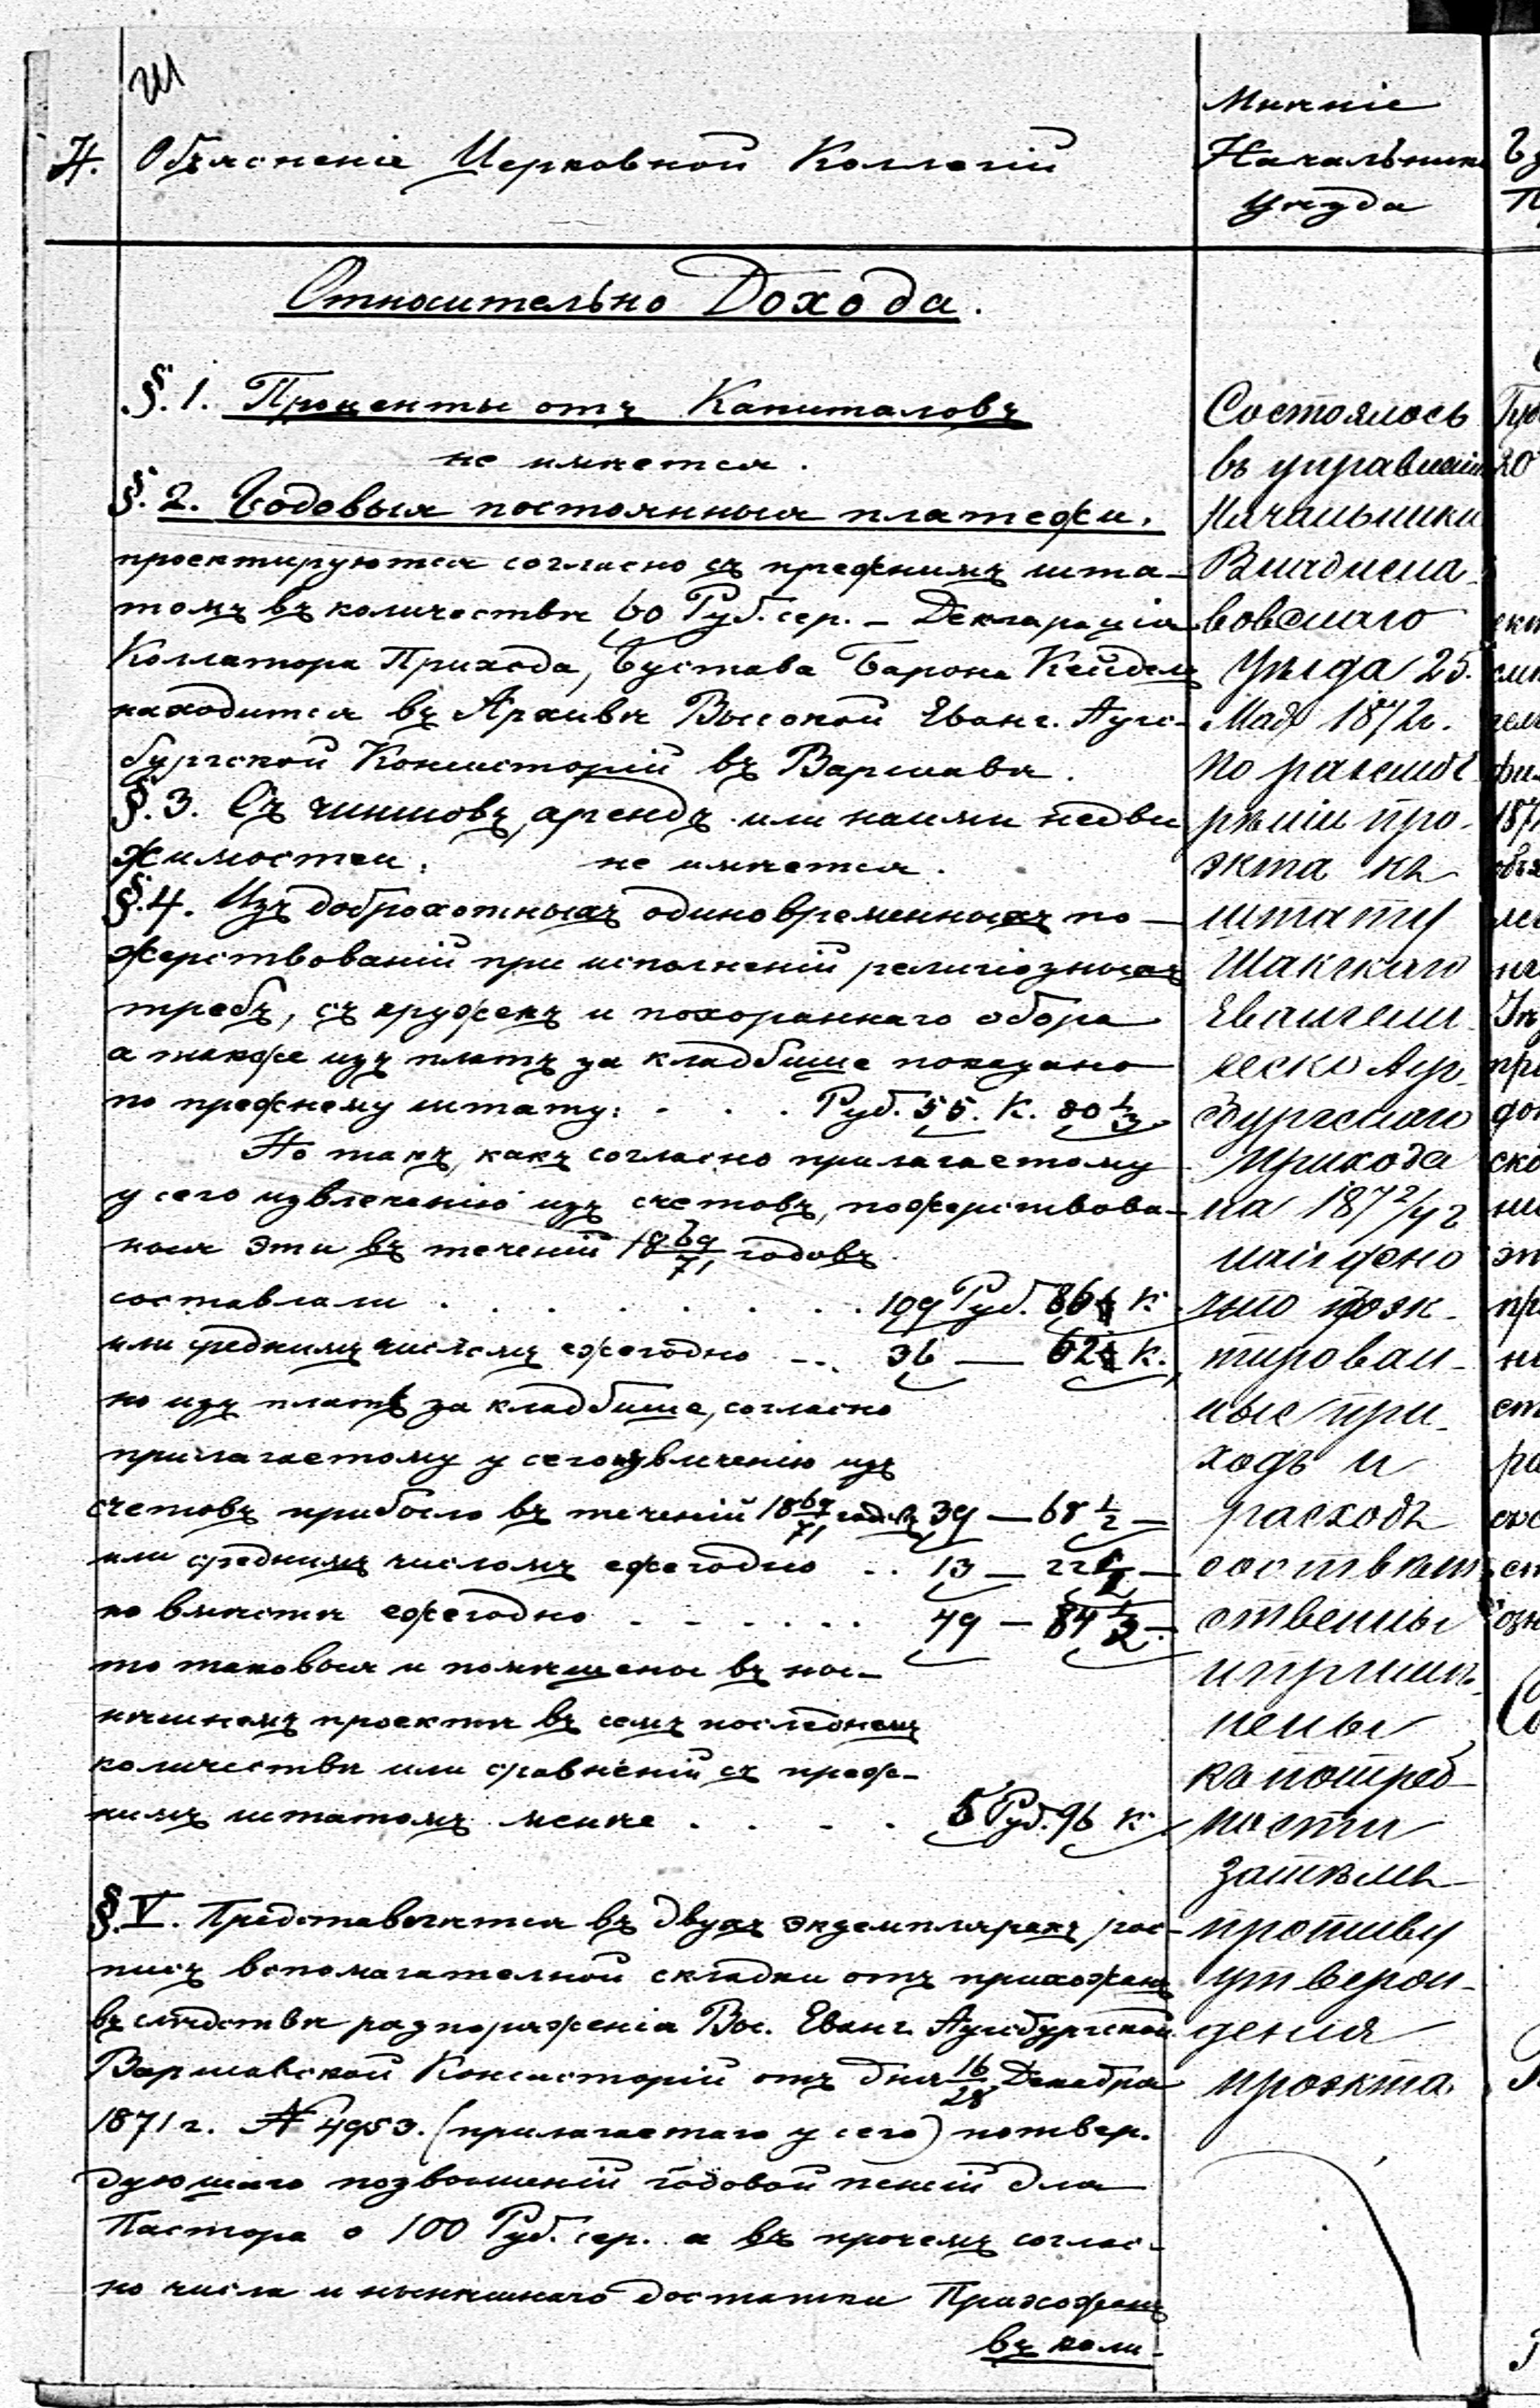 4. Объясненіе Церковной Коллегіи
Относительно Дохода.
§. 1. Проценты отъ Капиталовъ
не имѣется.
§. 2. Годовыя постоянныя платежи,
проектируются согласно съ прежнимъ шта-
томъ въ количествѣ 60 Руб. сер. – Декларація
Коллатора Прихода, Густава Барона Кейдель
находится въ Архивѣ Высокой Еванг. Аугс-
бургской Консисторіи въ Варшавѣ.
§. 3. Съ чиншовъ, арендъ или наями недви
жимостеи. не имѣется.
§. 4. Изъ доброхотныхъ одиновременныхъ по-
жертвованій при исполненій религіозныхъ
требъ, съ кружекъ и похороннаго сбора
а также изъ платъ за кладбище показано
по прежнему штату: . . . Руб. 55. К. 80 1/3
Но такъ какъ согласно прилагаетому
у сего извлеченію изъ счетовъ, пожертвова-
ныя эти въ теченій 1869/71 годовъ
составляли . . . . . . . . 109 Руб. 86 к
или среднимъ числомъ ежегодно ... 36 — 62 к.
но изъ платъ за кладбище, согласно
прилагаетому у сего извлеченію изъ
счетовъ прибыло въ теченій 1869/71 годовъ 39 — 68 1/2 —
или среднимъ числомъ ежегодно .. 13 — 22
по вмѣстѣ ежегодно . . . . . 49 — 84 1/2 -
то таковыя и помѣщены въ ны-
нѣшнемъ проектѣ въ семъ послѣднемъ
количествѣ или сравненій съ преж-
нимъ штатомъ менѣе . . . . 5 Руб. 96 к
§. V. Представляется въ двухъ экземплярахъ рос-
пись вспомагателной складки отъ прихожанъ
въ слѣдствѣ разпоряженія Выс. Еванг. Аугсбургской
Варшавской Консисторіи отъ дня 16/28 Декабря
1871 г. № 4953. (прилагаетаго у сего) потвер-
дующаго позвышеній годовой пенсіи для
Пастора о 100 Руб. сер. а въ прочемъ соглас-
но числа и нынѣшнаго достатки Прихожанъ
въ коли-
Мнѣніе
Начальника
Уѣзда
Состоялось
въ управленіи
Начальника
Владисла-
вовскаго
Уѣзда 25.
Мая 1872 г.
По разсмот
рѣніи про-
экта къ
штату
Шакскаго
Евангели-
ческо Ауг-
сбургскаго
прихода
на 1872/42
найдено
что проэк-
тирован-
ные при-
ходъ и
расходъ
соотвѣт-
ственны
и примѣ-
нены
къ потреб-
ности
затѣмъ
противу
утверж-
денія
проэкта